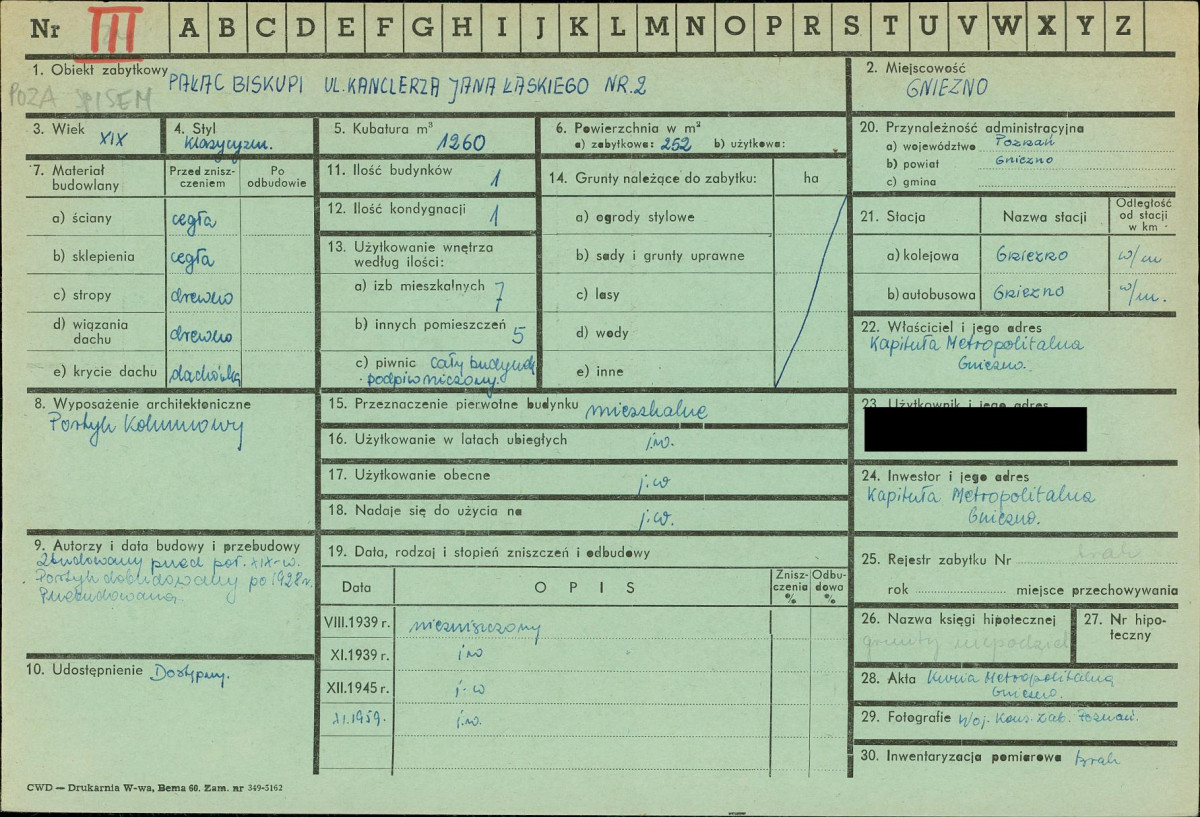 Nr III A B C D E F G H I J K L M N O P R S T U V W X Y Z
1. Obiekt zabytkowy PAŁAC BISKUPI UL. KANCLERZA JANA ŁASKIEGO NR. 2
POZA SPISEM
2. Miejscowość
GNIEZNO
3. Wiek XIX
4. Styl
klasycyzm.
5. Kubatura m³
1260
6. Powierzchnia w m²
a) zabytkowa: 252 b) użytkowa:
7. Materiał budowlany
Przed zniszczeniem
Po odbudowie
a) ściany cegła
b) sklepienia cegła
c) stropy drewno
d) wiązania dachu drewno
e) krycie dachu dachówka
8. Wyposażenie architektoniczne
Portyk kolumnowy
9. Autorzy i data budowy i przebudowy
Zbudowany przed poł. XIX-w.
Portyk dobudowany po 1928 r.
Przebudowana
10. Udostępnienie Dostępny.
11. Ilość budynków 1
12. Ilość kondygnacji 1
13. Użytkowanie wnętrza
według ilości:
a) izb mieszkalnych 7
b) innych pomieszczeń 5
c) piwnic Cały budynek
podpiwniczony.
14. Grunty należące do zabytku: ha
a) ogrody stylowe
b) sady i grunty uprawne
c) lasy
d) wody
e) inne
15. Przeznaczenie pierwotne budynku mieszkalne
16. Użytkowanie w latach ubiegłych j.w.
17. Użytkowanie obecne j.w
18. Nadaje się do użycia na j.w.
19. Data, rodzaj i stopień zniszczeń i odbudowy
Data
OPIS
Zniszczenia %
Odbudowa %
VIII.1939 r. niezniszczony
XI.1939 r. j.w
XII.1945 r. j.w
XI.1959. j.w.
20. Przynależność administracyjna
a) województwo Poznań
b) powiat Gniezno
c) gmina
21. Stacja
Nazwa stacji
Odległość od stacji w km
a) kolejowa GNIEZNO w/m
b) autobusowa GNIEZNO w/m.
22. Właściciel i jego adres
Kapituła Metropolitalna
Gniezno.
23. Użytkownik i jego adres
24. Inwestor i jego adres
Kapituła Metropolitalna
Gniezno.
25. Rejestr zabytku Nr brak
rok miejsce przechowywania
26. Nazwa księgi hipotecznej
grunty niepodziel
27. Nr hipoteczny
28. Akta Kuria Metropolitalna
Gniezno.
29. Fotografie Woj. Kons. Zab. Poznań.
30. Inwentaryzacja pomiarowa brak
CWD — Drukarnia W-wa, Bema 60. Zam. nr 349-5162